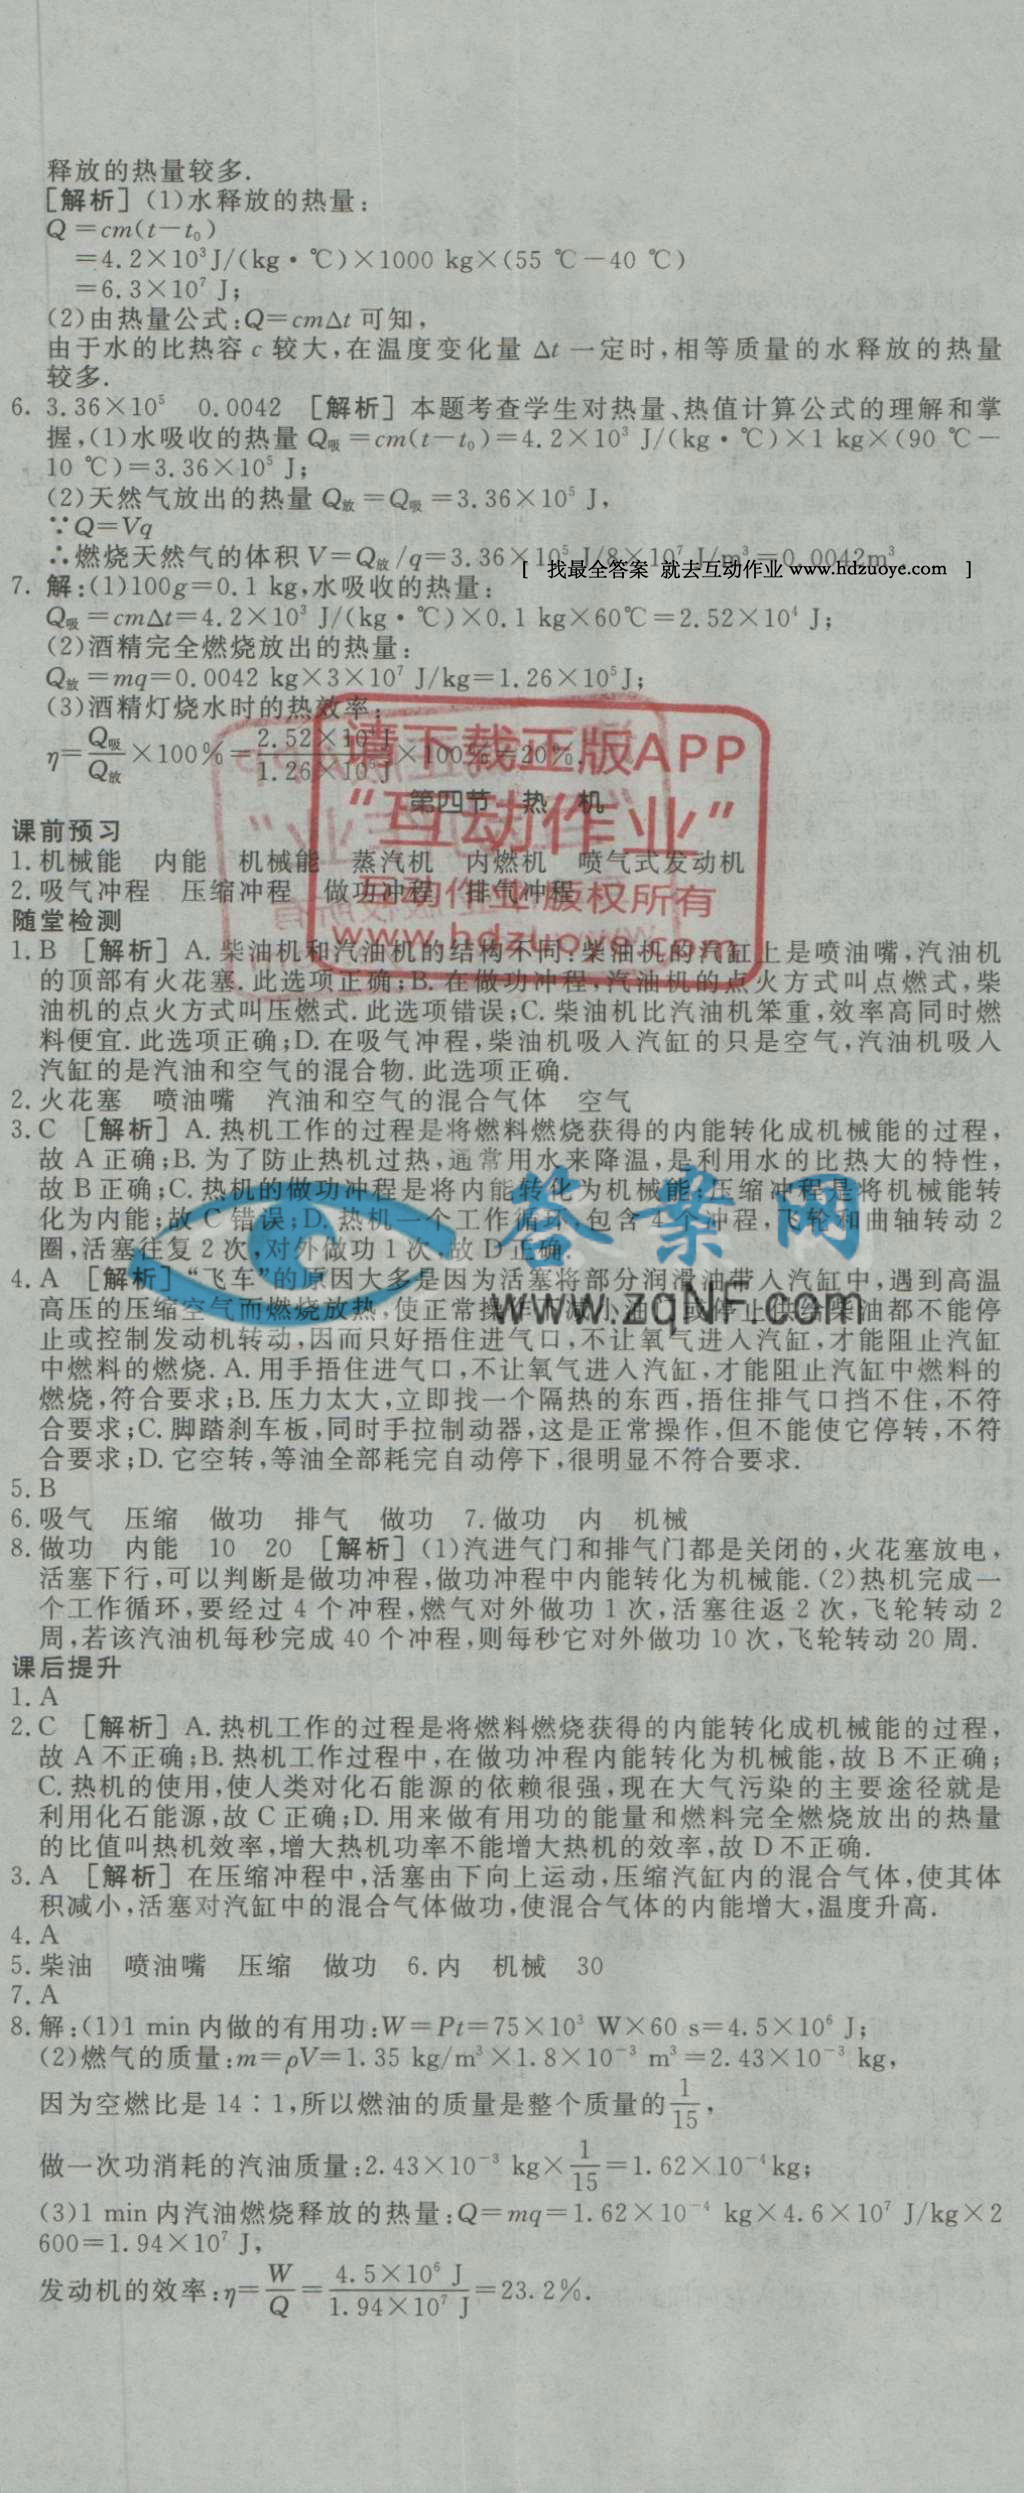 释放的热量较多.
[解析] (1)水释放的热量:
Q=cm(t-t₀)
=4.2×10³J/(kg·℃)×1000 kg×(55 ℃-40 ℃)
=6.3×10⁷ J;
(2)由热量公式:Q=cmΔt 可知,
由于水的比热容 c 较大,在温度变化量 Δt 一定时,相等质量的水释放的热量
较多.
6. 3.36×10⁵ 0.0042 [解析] 本题考查学生对热量、热值计算公式的理解和掌
握,(1)水吸收的热量 Q吸=cm(t-t₀)=4.2×10³ J/(kg·℃)×1 kg×(90 ℃-
10 ℃)=3.36×10⁵ J;
(2)天然气放出的热量 Q放=Q吸=3.36×10⁵ J,
∵Q=Vq
∴燃烧天然气的体积 V=Q放/q=3.36×10⁵ J/8×10⁷ J/m³=0.0042m³
[ 找最全答案 就去互动作业 www.hdzuoye.com ]
7. 解:(1)100g=0.1 kg,水吸收的热量:
Q吸=cmΔt=4.2×10³ J/(kg·℃)×0.1 kg×60℃=2.52×10⁴ J;
(2)酒精完全燃烧放出的热量:
Q放=mq=0.0042 kg×3×10⁷ J/kg=1.26×10⁵J;
(3)酒精灯烧水时的热效率:
η=Q吸/Q放×100%=2.52×10⁴J/1.26×10⁵J×100%=20%.
请下载正版APP
“互动作业”
互动作业 版权所有
www.hdzuoye.com
第四节 热 机
课前预习
1. 机械能 内能 机械能 蒸汽机 内燃机 喷气式发动机
2. 吸气冲程 压缩冲程 做功冲程 排气冲程
随堂检测
1. B [解析] A. 柴油机和汽油机的结构不同:柴油机的汽缸上是喷油嘴,汽油机
的顶部有火花塞. 此选项正确;B. 在做功冲程,汽油机的点火方式叫点燃式,柴
油机的点火方式叫压燃式. 此选项错误;C. 柴油机比汽油机笨重,效率高同时燃
料便宜. 此选项正确;D. 在吸气冲程,柴油机吸入汽缸的只是空气,汽油机吸入
汽缸的是汽油和空气的混合物. 此选项正确.
2. 火花塞 喷油嘴 汽油和空气的混合气体 空气
3. C [解析] A. 热机工作的过程是将燃料燃烧获得的内能转化成机械能的过程,
故 A 正确;B. 为了防止热机过热,通常用水来降温,是利用水的比热大的特性,
故 B 正确;C. 热机的做功冲程是将内能转化为机械能;压缩冲程是将机械能转
化为内能;故 C 错误;D. 热机一个工作循环,包含 4 个冲程,飞轮和曲轴转动 2
圈,活塞往复 2 次,对外做功 1 次.故 D 正确.
答案网
www.zqNF.com
4. A [解析] “飞车”的原因大多是因为活塞将部分润滑油带入汽缸中,遇到高温
高压的压缩空气而燃烧放热,使正常操作中减小油门或停止供给柴油都不能停
止或控制发动机转动,因而只好捂住进气口,不让氧气进入汽缸,才能阻止汽缸
中燃料的燃烧. A. 用手捂住进气口,不让氧气进入汽缸,才能阻止汽缸中燃料的
燃烧,符合要求;B. 压力太大,立即找一个隔热的东西,捂住排气口挡不住,不符
合要求;C. 脚踏刹车板,同时手拉制动器,这是正常操作,但不能使它停转,不符
合要求;D. 它空转,等油全部耗完自动停下,很明显不符合要求.
5. B
6. 吸气 压缩 做功 排气 做功 7. 做功 内 机械
8. 做功 内能 10 20 [解析] (1)汽进气门和排气门都是关闭的,火花塞放电,
活塞下行,可以判断是做功冲程,做功冲程中内能转化为机械能. (2)热机完成一
个工作循环,要经过 4 个冲程,燃气对外做功 1 次,活塞往返 2 次,飞轮转动 2
周,若该汽油机每秒完成 40 个冲程,则每秒它对外做功 10 次,飞轮转动 20 周.
课后提升
1. A
2. C [解析] A. 热机工作的过程是将燃料燃烧获得的内能转化成机械能的过程,
故 A 不正确;B. 热机工作过程中,在做功冲程内能转化为机械能,故 B 不正确;
C. 热机的使用,使人类对化石能源的依赖很强,现在大气污染的主要途径就是
利用化石能源,故 C 正确;D. 用来做有用功的能量和燃料完全燃烧放出的热量
的比值叫热机效率,增大热机功率不能增大热机的效率,故 D 不正确.
3. A [解析] 在压缩冲程中,活塞由下向上运动,压缩汽缸内的混合气体,使其体
积减小,活塞对汽缸中的混合气体做功,使混合气体的内能增大,温度升高.
4. A
5. 柴油 喷油嘴 压缩 做功 6. 内 机械 30
7. A
8. 解:(1)1 min 内做的有用功:W=Pt=75×10³ W×60 s=4.5×10⁶ J;
(2)燃气的质量:m=ρV=1.35 kg/m³×1.8×10⁻³ m³=2.43×10⁻³ kg,
因为空燃比是 14∶1,所以燃油的质量是整个质量的 1/15,
做一次功消耗的汽油质量:2.43×10⁻³ kg×1/15=1.62×10⁻⁴kg;
(3)1 min 内汽油燃烧释放的热量:Q=mq=1.62×10⁻⁴ kg×4.6×10⁷ J/kg×2
600=1.94×10⁷ J,
发动机的效率:η=W/Q=4.5×10⁶ J/1.94×10⁷ J=23.2%.